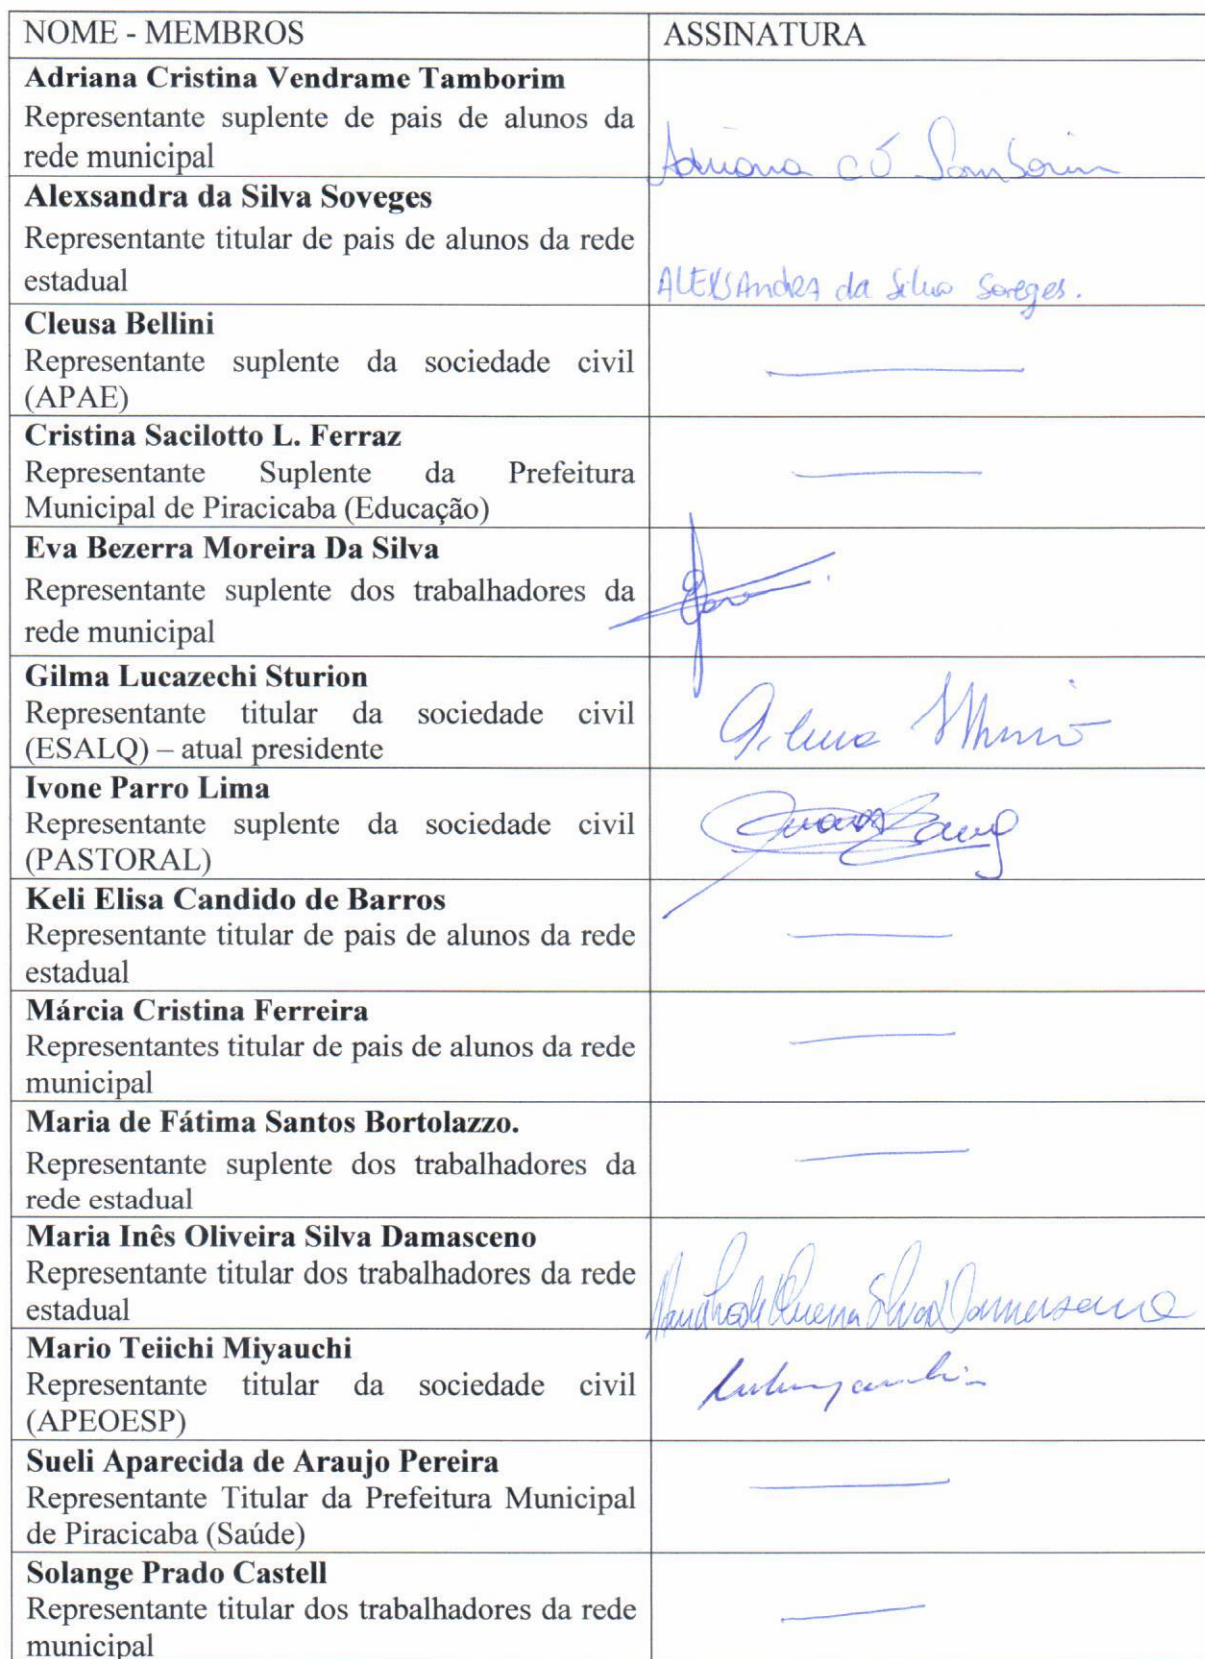 NOME - MEMBROS
ASSINATURA
Adriana Cristina Vendrame Tamborim
Representante suplente de pais de alunos da
rede municipal
Adriana
Alexsandra da Silva Soveges
Representante titular de pais de alunos da rede
estadual
ALEXSAndRA da Silva Soveges.
Cleusa Bellini
Representante suplente da sociedade civil
(APAE)
Cristina Sacilotto L. Ferraz
Representante Suplente da Prefeitura
Municipal de Piracicaba (Educação)
Eva Bezerra Moreira Da Silva
Representante suplente dos trabalhadores da
rede municipal
Gilma Lucazechi Sturion
Representante titular da sociedade civil
(ESALQ) – atual presidente
Gilma Sturion
Ivone Parro Lima
Representante suplente da sociedade civil
(PASTORAL)
Keli Elisa Candido de Barros
Representante titular de pais de alunos da rede
estadual
Márcia Cristina Ferreira
Representantes titular de pais de alunos da rede
municipal
Maria de Fátima Santos Bortolazzo.
Representante suplente dos trabalhadores da
rede estadual
Maria Inês Oliveira Silva Damasceno
Representante titular dos trabalhadores da rede
estadual
Mario Teiichi Miyauchi
Representante titular da sociedade civil
(APEOESP)
Sueli Aparecida de Araujo Pereira
Representante Titular da Prefeitura Municipal
de Piracicaba (Saúde)
Solange Prado Castell
Representante titular dos trabalhadores da rede
municipal